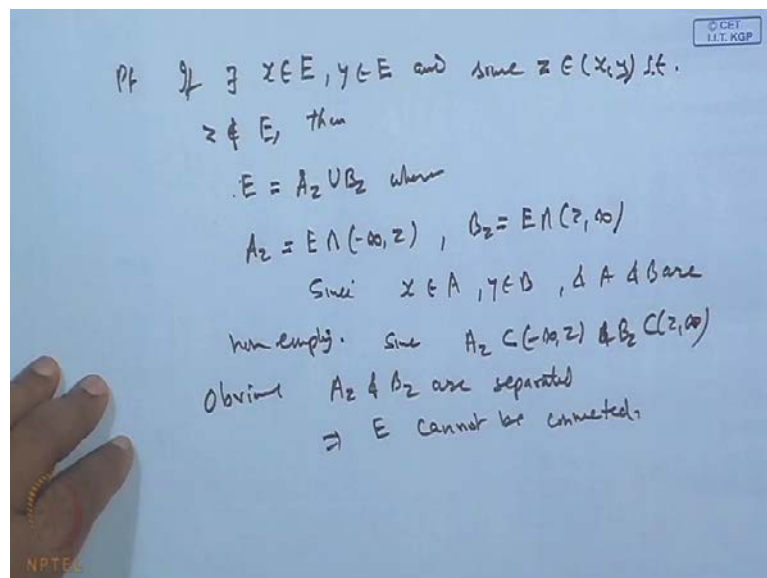 © CET
I.I.T. KGP
Pf If ∃ x ∈ E, y ∈ E and some z ∈ (x, y) s.t.
z ∉ E, then
E = A_z ∪ B_z where
A_z = E ∩ (-∞, z) , B_z = E ∩ (z, ∞)
Since x ∈ A , y ∈ B , & A & B are
non empty. Since A_z ⊂ (-∞, z) & B_z ⊂ (z, ∞)
Obvious A_z & B_z are separated
⇒ E cannot be connected.
NPTEL